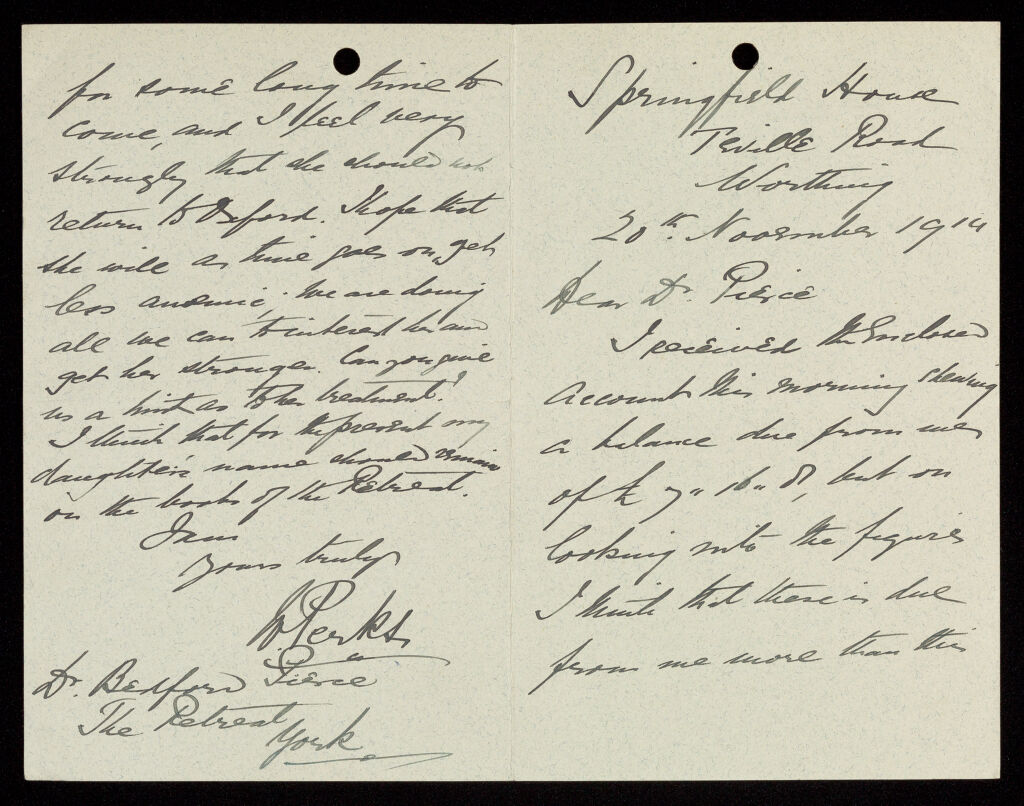 Springfield House
Teville Road
Worthing
20th. November 1914
Dear Dr. Pierce
I received the Enclosed
account this morning shewing
a balance due from me
of £ 7" 16" 8, but on
looking into the figures
I think that there is due
from me more than this
for some long time to
come, and I feel very
strongly that she should not
return to Oxford. I hope that
she will as time goes on, get
less anæmic; We are doing
all we can to interest her and
get her stronger. Can you give
us a hint as to her treatment?
I think that for the present my
daughter's name should remain
on the books of the Retreat.
I am
yours truly
W. Perkts
Dr. Bedford Pierce
The Retreat
York